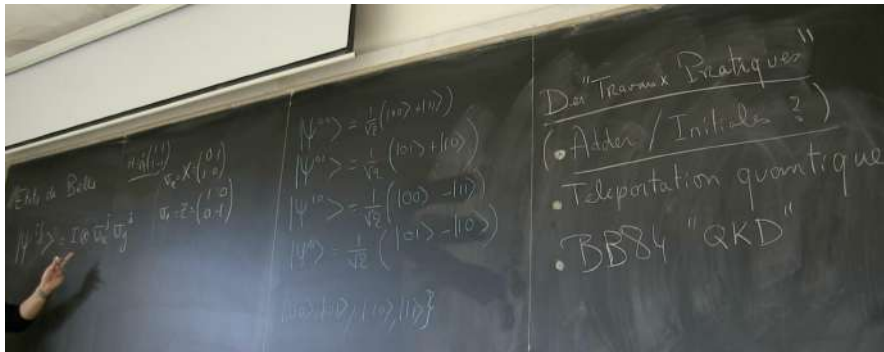 Etats de Bell
H = 1/√2 (1 1 / 1 -1)
σx = X = (0 1 / 1 0)
σz = Z = (1 0 / 0 -1)
= I ⊗
|ψ⁰⁰> = 1/√2 (|00> + |11>)
= 1/√2 (|01> + |10>)
|ψ¹⁰> = 1/√2 (|00> - |11>)
= 1/√2 (|01> - |10>)
|10>, |11>}
Des "Travaux Pratiques"
(• Adder / Initiales ?)
• Teleportation quantique
• BB84 "QKD"